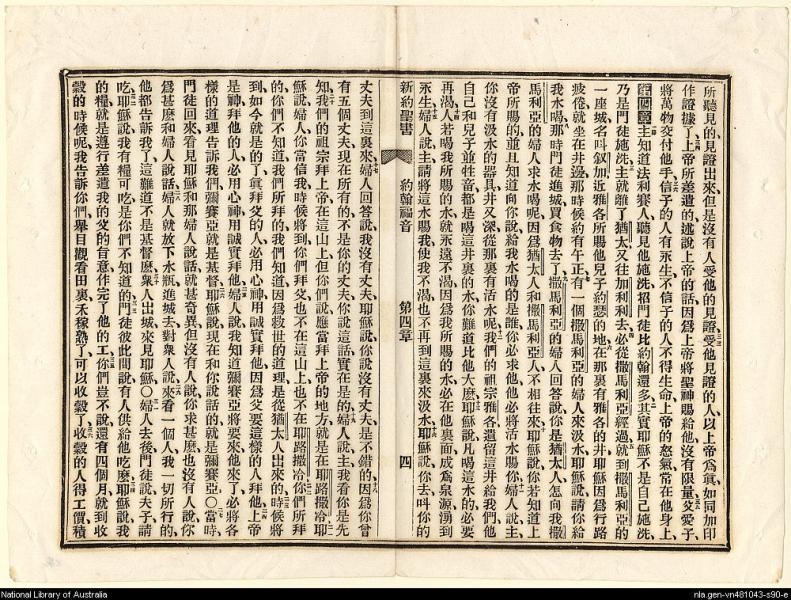 所聽見的見證出來但是沒有人受他的見證受他見證的人以上帝爲眞如同加印
作證據了上帝所差遣的述說上帝的話因爲上帝將聖神賜給他沒有限量父愛子
將萬物交付他手信子的人有永生不信子的人不得生命上帝的怒氣常在他身上
主知道法利賽人聽見他施洗招門徒比約翰還多其實耶穌不是自己施洗
乃是門徒施洗主就離了猶太又往加利利去必從撒馬利亞經過就到撒馬利亞的
一座城名叫叙加近雅各所賜他兒子約瑟的地在那裏有雅各的井耶穌因爲行路
疲倦就坐在井邊那時候約有午正有一個撒馬利亞的婦人來汲水耶穌說請你給
我水喝那時門徒進城買食物去了撒馬利亞的婦人回答說你是猶太人怎向我撒
馬利亞的婦人求水喝呢因爲猶太人和撒馬利亞人不相往來耶穌說你若知道上
帝所賜的並且知道向你說給我水喝的是誰你必求他他必將活水賜你婦人說主
你沒有汲水的器具井又深從那裏有活水呢我們的祖宗雅各遺留這井給我們他
自己和兒子並牲畜都是喝這井裏的水你難道比他大麽耶穌說凡喝這水的必要
再渴人若喝我所賜的水就永遠不渴因爲我所賜的水必在他裏面成爲泉源湧到
永生婦人說主請將這水賜我使我不渴也不再到這裏來汲水耶穌說你去叫你的
新約聖書 約翰福音 第四章 四
丈夫到這裏來婦人回答說我沒有丈夫耶穌說你說沒有丈夫是不錯的因爲你曾
有五個丈夫現在所有的不是你的丈夫你說這話實在是的婦人說主我看你是先
知我們的祖宗拜上帝在這山上但你們說應當拜上帝的地方就是在耶路撒冷耶
穌說婦人你當信我時候將到你們拜父也不在這山上也不在耶路撒冷你們所拜
的你們不知道我們所拜的我們知道因爲救世的道理是從猶太人出來的時候將
到如今就是的了眞拜父的人必用心神用誠實拜他因爲父要這樣的人拜他上帝
是神拜他的人必用心神用誠實拜他婦人說我知道彌賽亞將要來他來了必將各
樣的道理告訴我們彌賽亞就是基督耶穌說現在和你說話的就是彌賽亞〇當時
門徒回來看見耶穌和那婦人說話就甚奇異但沒有人說你求甚麽也沒有人說你
爲甚麽和婦人說話婦人就放下水瓶進城去對衆人說來看一個人我一切所行的
他都告訴我了這難道不是基督麽衆人出城來見耶穌〇婦人去後門徒說夫子請
吃耶穌說我有糧可吃是你們不知道的門徒彼此問說有人供給他吃麽耶穌說我
的糧就是遵行差遣我的父的旨意作完了他的工你們豈不說還有四個月就到收
穀的時候呢我告訴你們舉目觀看田裏禾稼熟了可以收穀了收穀的人得工價積
National Library of Australia
nla.gen-vn481043-s90-e